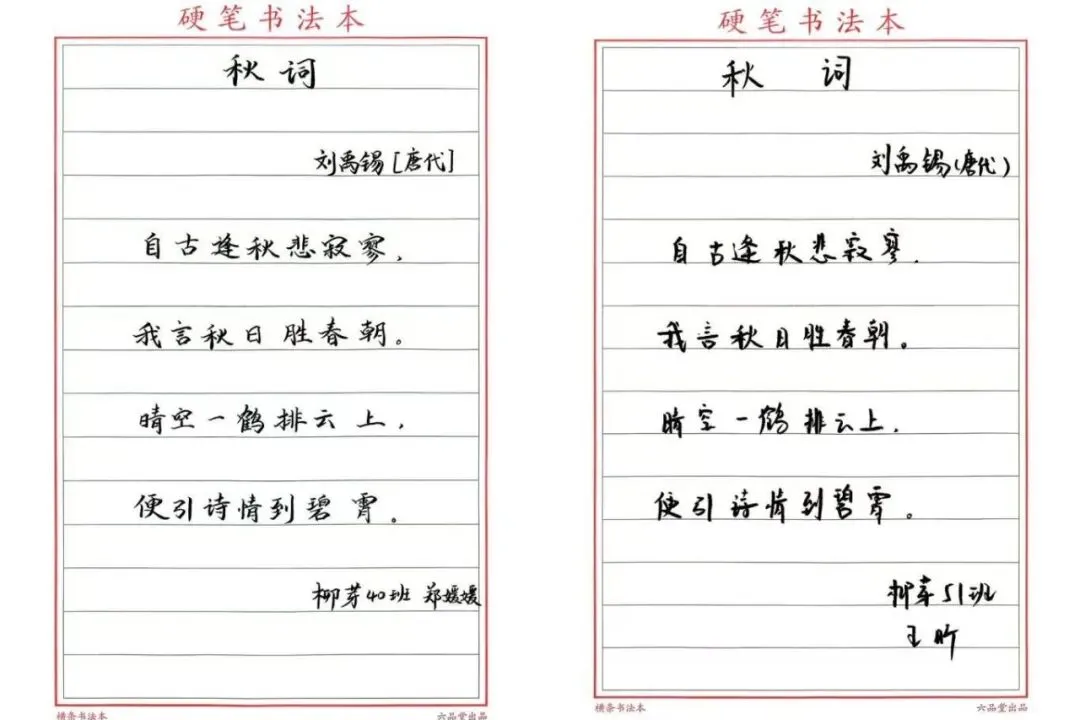 硬笔书法本
秋词
刘禹锡[唐代]
自古逢秋悲寂寥,
我言秋日胜春朝。
晴空一鹤排云上,
便引诗情到碧霄。
柳芽40班 郑媛媛
横条书法本 六品堂出品
硬笔书法本
秋 词
刘禹锡(唐代)
自古逢秋悲寂寥,
我言秋日胜春朝。
晴空一鹤排云上,
便引诗情到碧霄。
柳芽51班
王昕
横条书法本 六品堂出品